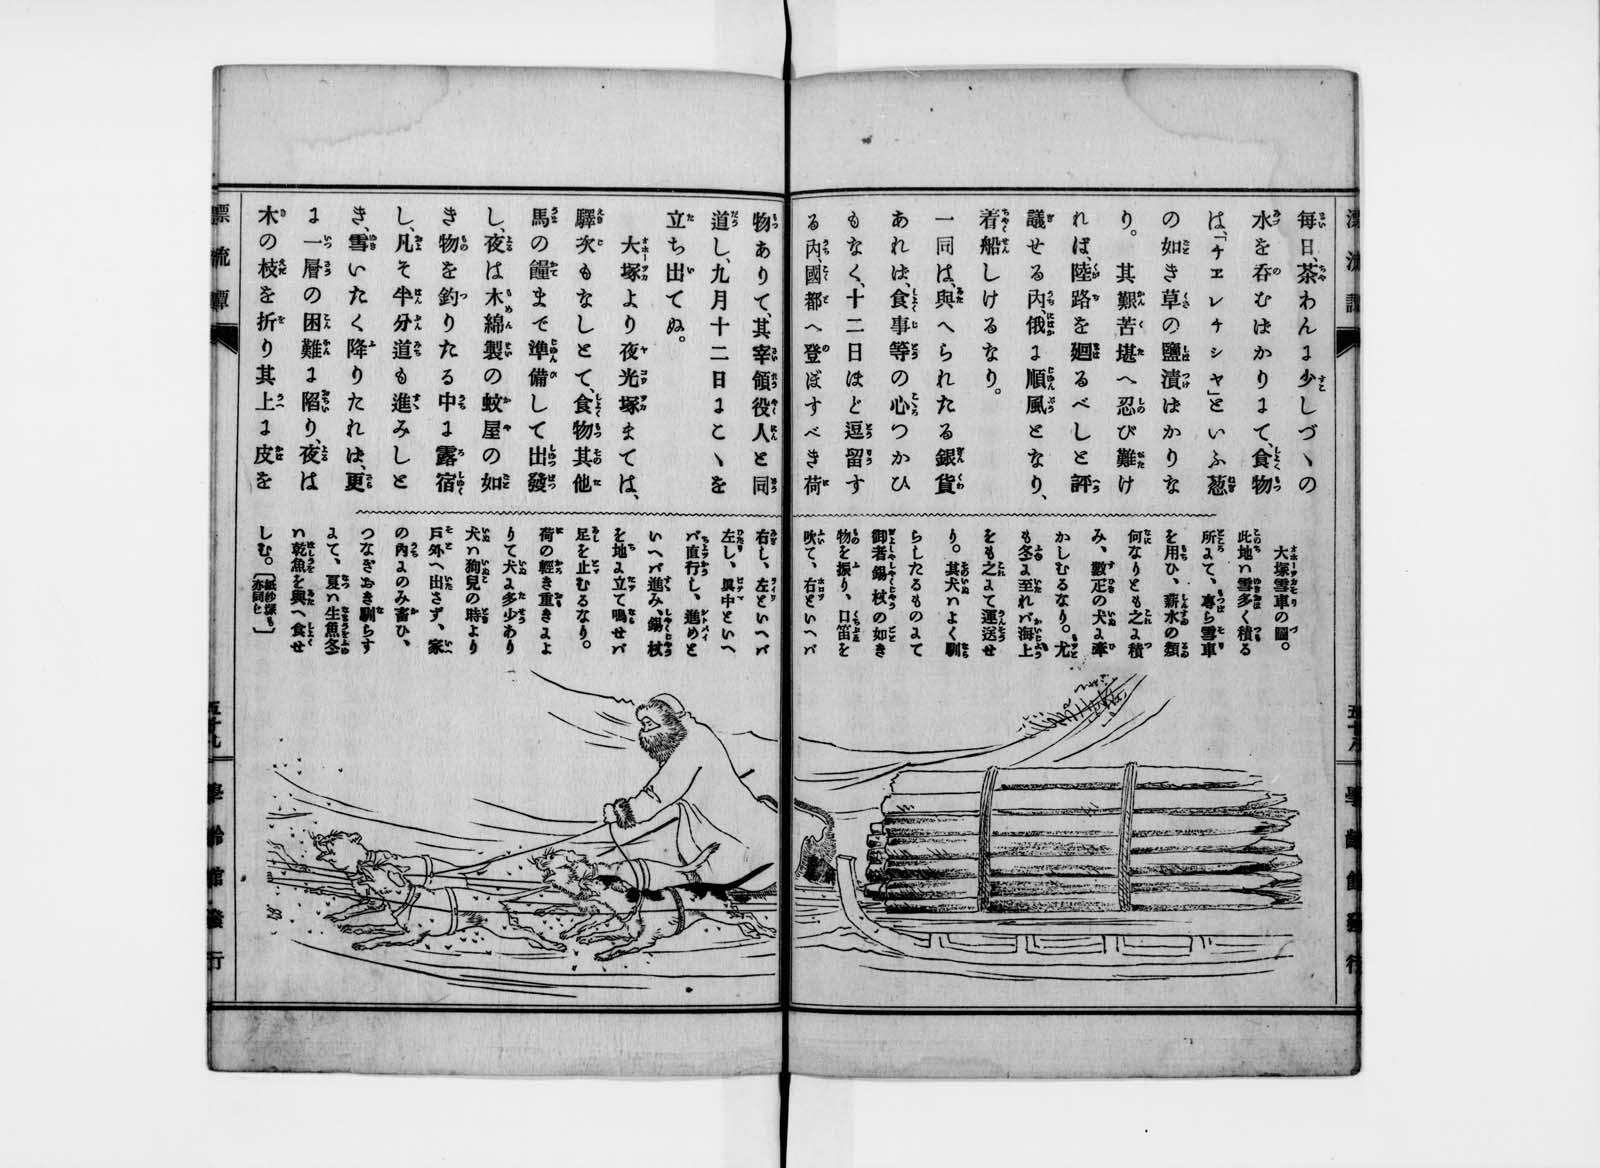 毎日、茶わんに少しづゝの
水を呑むばかりにて、食物
は、「チエレチシヤ」といふ葱
の如き草の鹽漬ばかりな
り。其艱苦堪へ忍び難け
れば、陸路を廻るべしと評
議せる内、俄に順風となり、
着船しけるなり。
一同は、與へられたる銀貨
あれば、食事等の心つかひ
もなく、十二日ほど逗留す
る内、國都へ登ぼすべき荷
物ありて、其宰領役人と同
道し、九月十二日にこゝを
立ち出でぬ。
大塚より夜光塚までは、
驛次もなしとて、食物其他
馬の饉まで準備して出發
し、夜は木綿製の蚊屋の如
き物を釣りたる中に露宿
し、凡そ半分道も進みしと
き、雪いたく降りたれば、更
に一層の困難に陷り、夜は
木の枝を折り其上に皮を
大塚雪車の圖。
此地ハ雪多く積る
所にて、專ら雪車
を用ひ、薪水の類
何なりとも之に積
み、數疋の犬に牽
かしむるなり。尤
も冬に至れバ海上
をも之にて運送せ
り。其犬ハよく馴
らしたるものにて
御者錫杖の如き
物を振り、口笛を
吹て、右といへバ
右し、左といへバ
左し、眞中といへ
バ直行し、進めと
いへバ進み、錫杖
を地に立て鳴せバ
足を止むるなり。
荷の輕き重きによ
りて犬に多少あり
犬ハ狗兒の時より
戸外へ出さず、家
の内にのみ畜ひ、
つなぎおき馴らす
にて、夏ハ生魚冬
ハ乾魚を與へ食せ
しむ。
亦同じ
漂流譚
五十八
學齡館發行
漂流譚
五十九
學齡館發行